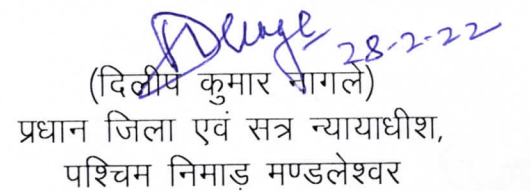 28-2-22
(दिलीप कुमार नागले)
प्रधान जिला एवं सत्र न्यायाधीश,
पश्चिम निमाड़ मण्डलेश्वर